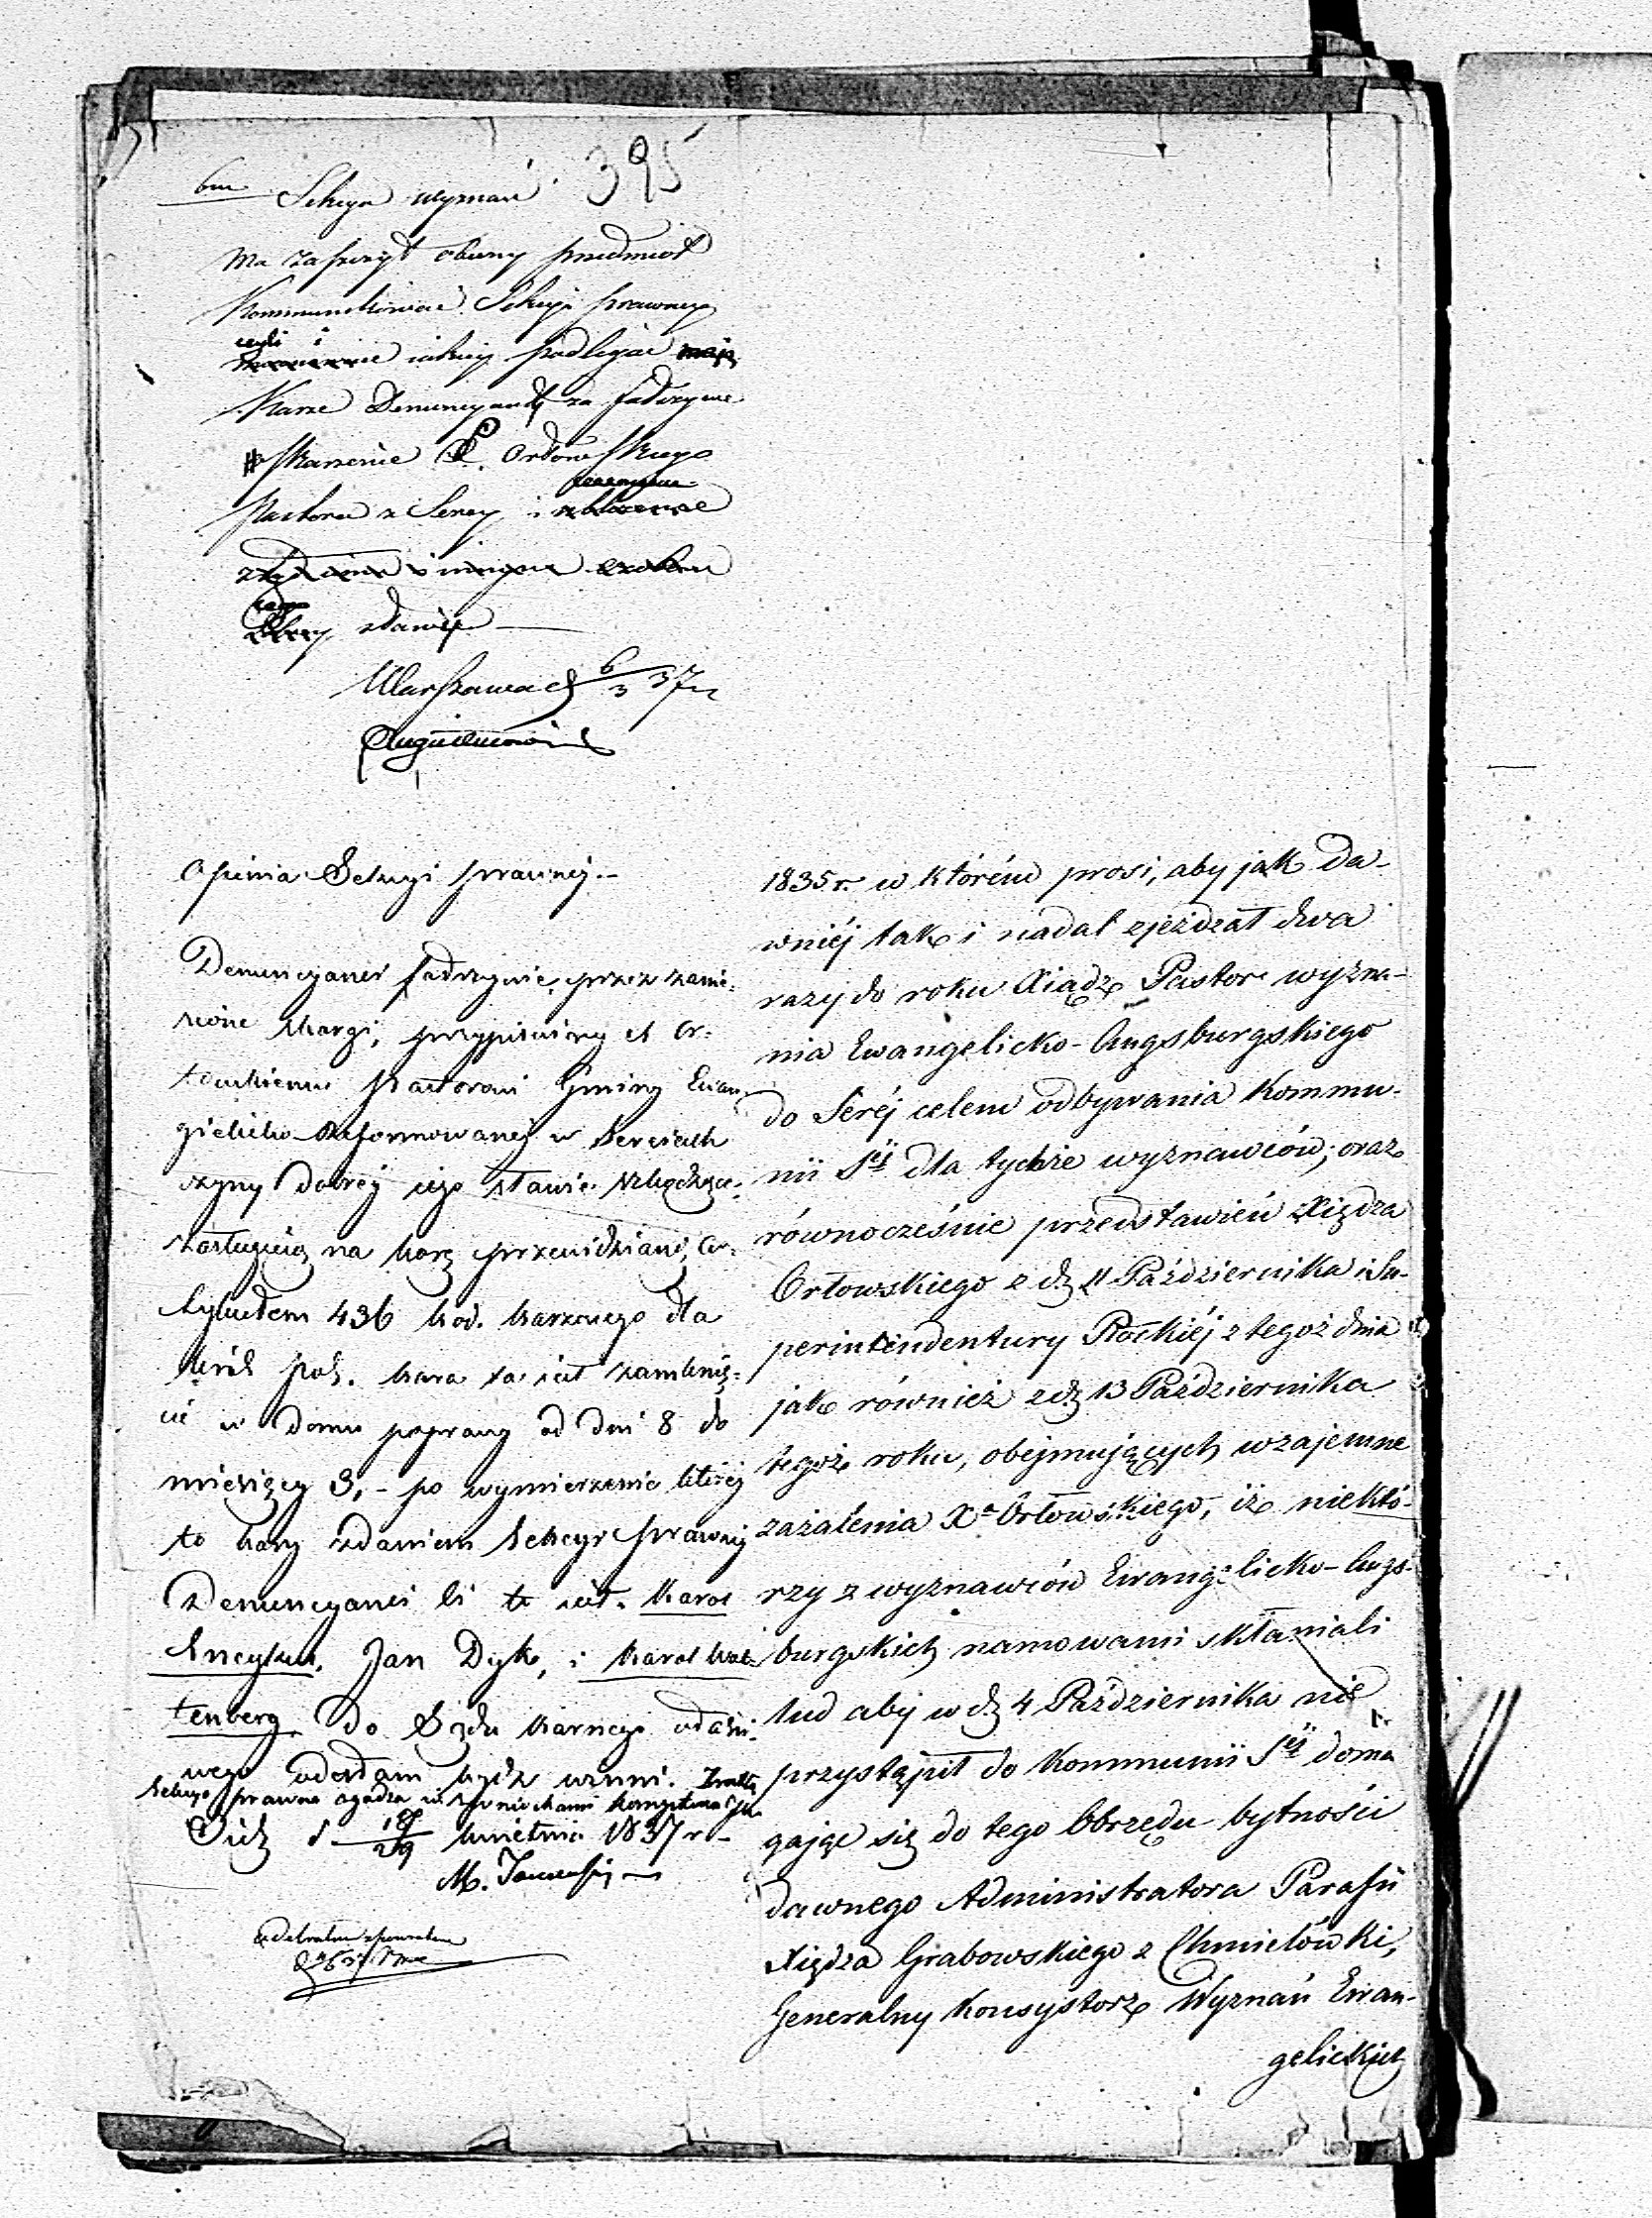 395
Sekcya wyznań
ma zapozyt obecny przedmiot
Kommunikować Sekcyi prawney
czyli i
jakiey podlegać mają
Karze Denuncyanci za fałszywe
skarzenie P. Orłowskiego
Pastora z Serey i
zdanie
Warszawa d 6/3 37 r
Opinia Sekcyi prawnej.-
Denuncyanci fałszywie, przez zanie-
sione skargi, przypisując X Or-
łowskiemu Pastorowi Gminy Ewan-
gielicko-Reformowanej w Sereiach
czyny dobréy iego sławie
zasługują na karę przewidzianą Ar-
tykułem 436 kod. karzącego dla
Król Pol. kara ta iest zamknię-
cie w domu poprawy od dni 8 do
miesięcy 3,- po wymierzenie którey
to kary zdaniem Sekcyi Prawnej
Denuncyanci ci to iest. Karol
Jan Dyk, i Karol Wal-
tenberg do Sądu karnego właści-
wego odesłani bydź winni.
Sekcya prawna zgadza
d 17/29 kwietnia 1837 r -
1835 r. w którém prosi, aby jak da-
wniéj tak i nadal zjeżdzał dwa
razy do roku Xiądz Pastor wyzna-
nia Ewangelicko-Augsburgskiego
do Seréj celem odbywania Kommu-
nii Stéj dla tychże wyznawców; oraz
równocześnie przedstawień Xiędza
Orłowskiego z d. 11 Października i Su-
perintendentury Płockiéj z tegoż dnia
jak również z d. 13 Października
tegoż roku, obejmujących wzajemne
zażalenia Xa Orłowskiego, iż niektó-
rzy z wyznawców Ewangelicko-Augs-
burgskich namowami skłaniali
lud aby w d. 4 Października nie
przystąpił do Kommunii Stéj doma
gając się do tego Obrzędu bytności
dawnego Administratora Parafii
Xiędza Grabowskiego z Chmielówki,
Generalny Konsystorz Wyznań Ewan-
gelickich